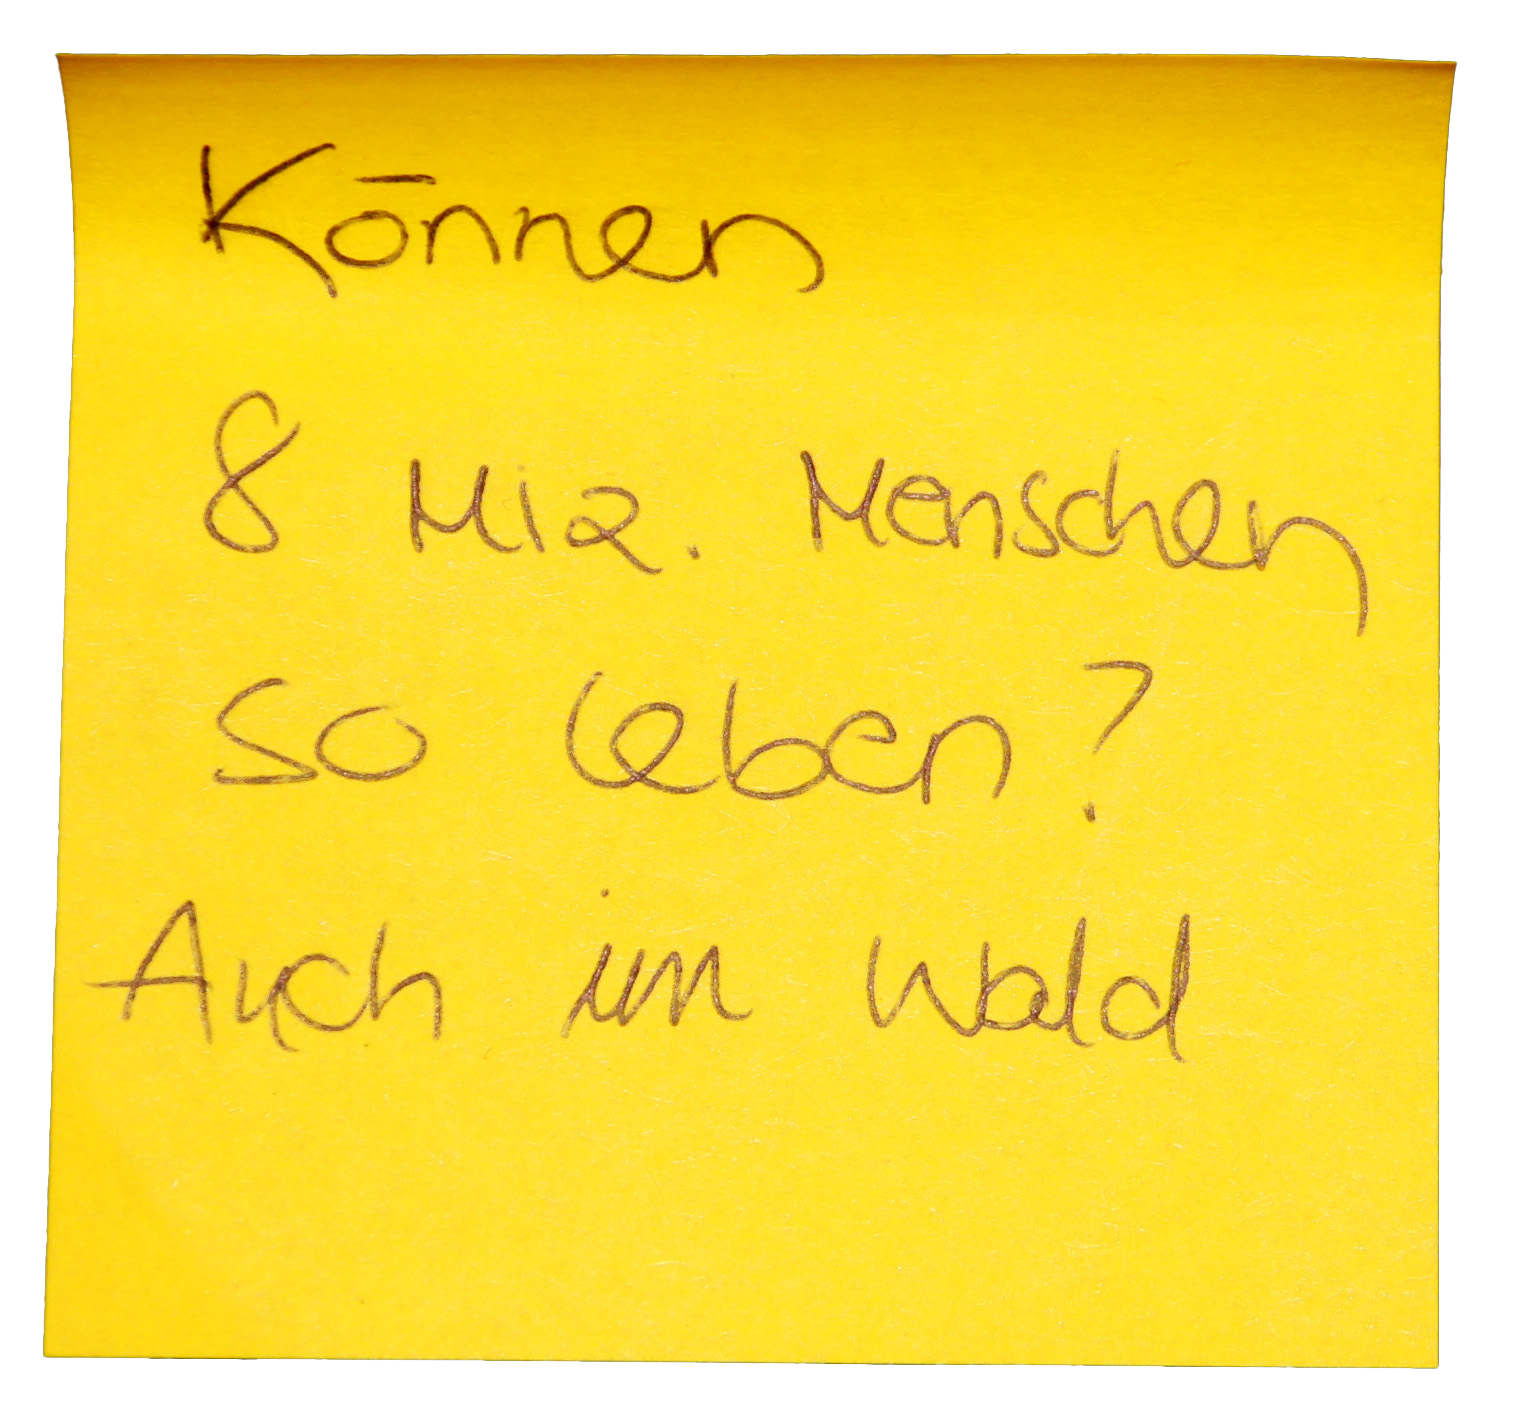 Können
8 Mia. Menschen
so leben?
Auch im Wald